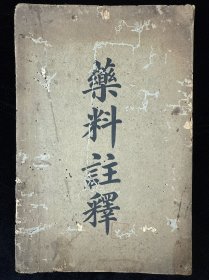 藥料註釋